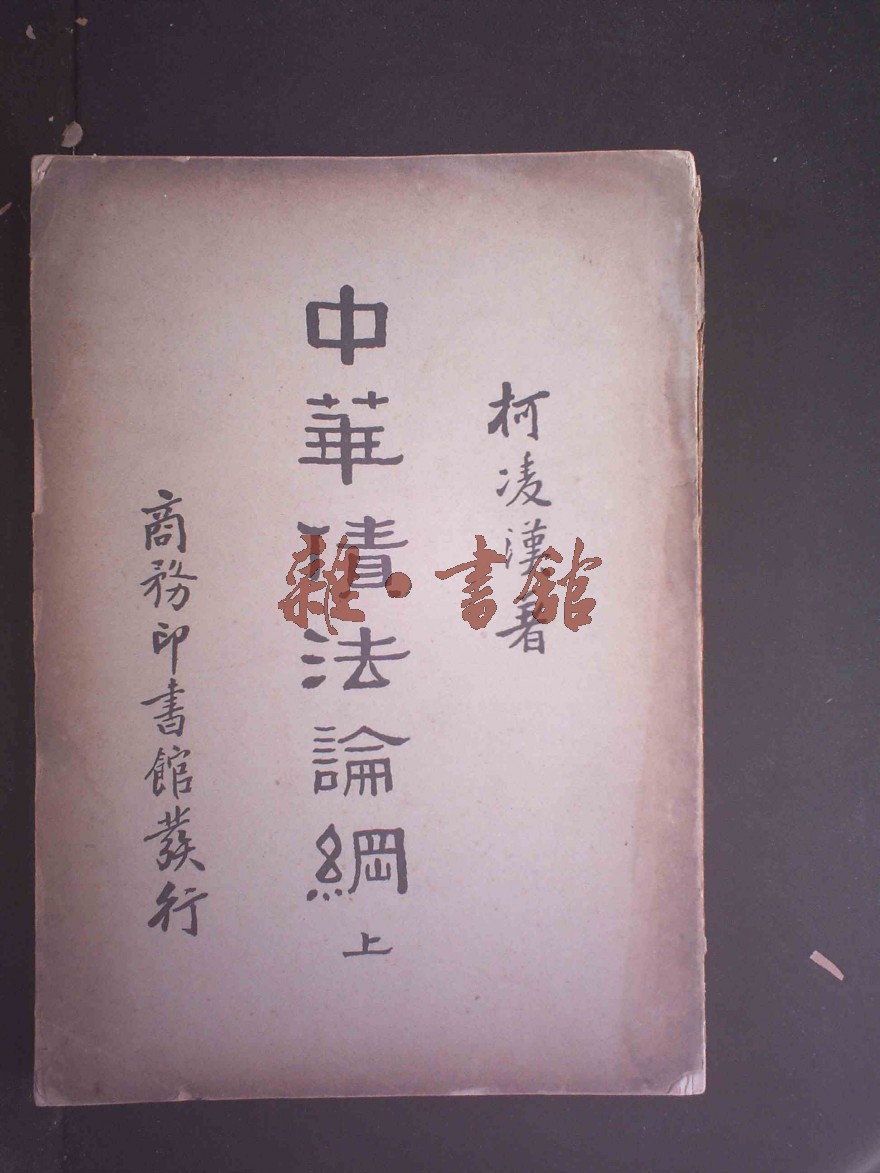 柯凌漢著
中華債法論綱 上
商務印書館發行
雜·書館